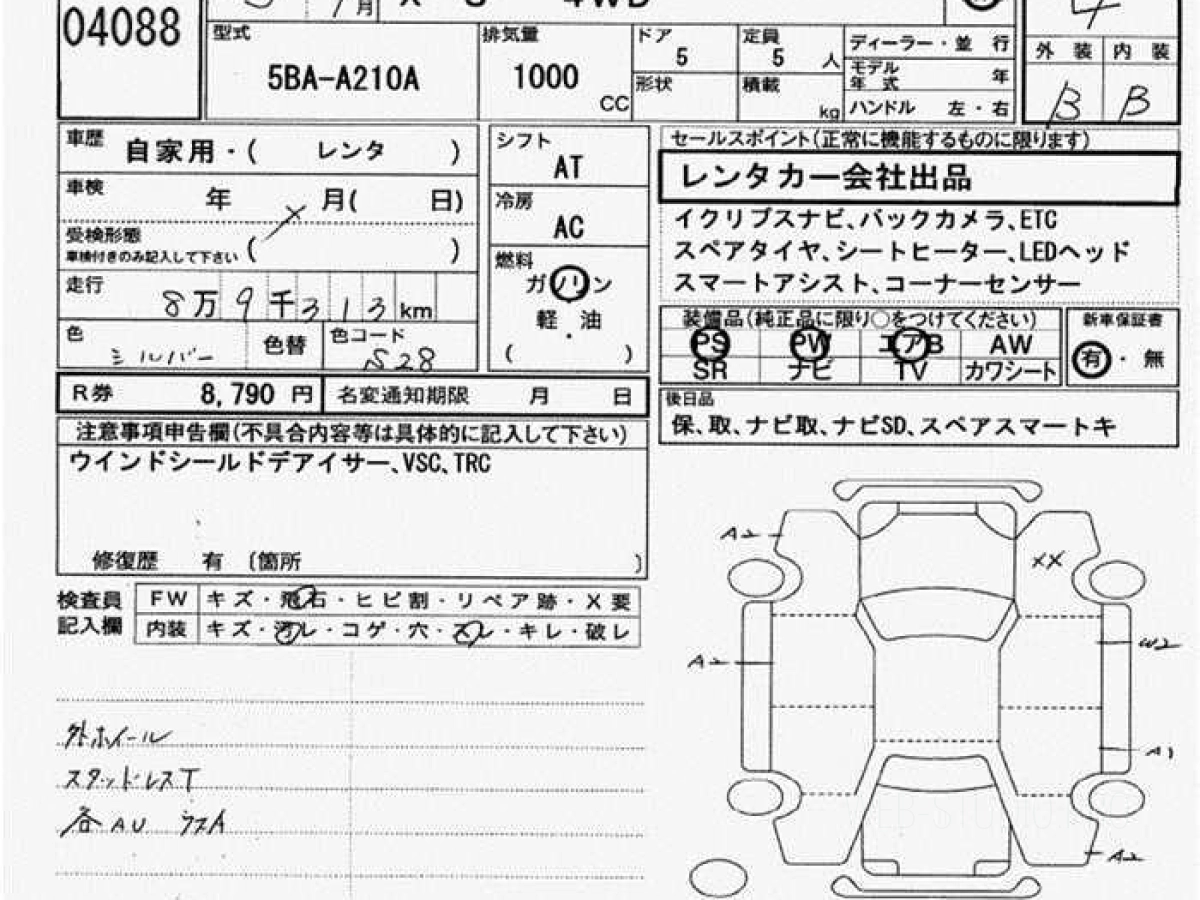 04088
月
4WD
4
型式
5BA-A210A
排気量
1000
CC
ドア
5
定員
5 人
形状
積載
kg
ディーラー・並 行
モデル年式 年
ハンドル 左・右
外 装 内 装
B B
車歴
自家用・( レンタ )
車検
年 月( 日)
受検形態
車検付きのみ記入して下さい ( )
走行
8万9千313km
色
シルバー
色替
色コード
S28
シフト
AT
冷房
AC
燃料
ガソリン
軽・油
( )
セールスポイント(正常に機能するものに限ります)
レンタカー会社出品
イクリプスナビ、バックカメラ、ETC
スペアタイヤ、シートヒーター、LEDヘッド
スマートアシスト、コーナーセンサー
装備品(純正品に限り○をつけてください)
PS PW エアB AW
SR ナビ TV カワシート
新車保証書
有・無
R券 8,790 円 名変通知期限 月 日
後日品
保、取、ナビ取、ナビSD、スペアスマートキ
注意事項申告欄(不具合内容等は具体的に記入して下さい)
ウインドシールドデアイサー、VSC、TRC
修復歴 有 〔箇所 〕
検査員記入欄
FW キズ・飛石・ヒビ割・リペア跡・X要
内装 キズ・汚レ・コゲ・穴・スレ・キレ・破レ
外ホイール
スタッドレスT
各AU
A2
XX
A2
W2
A1
A2